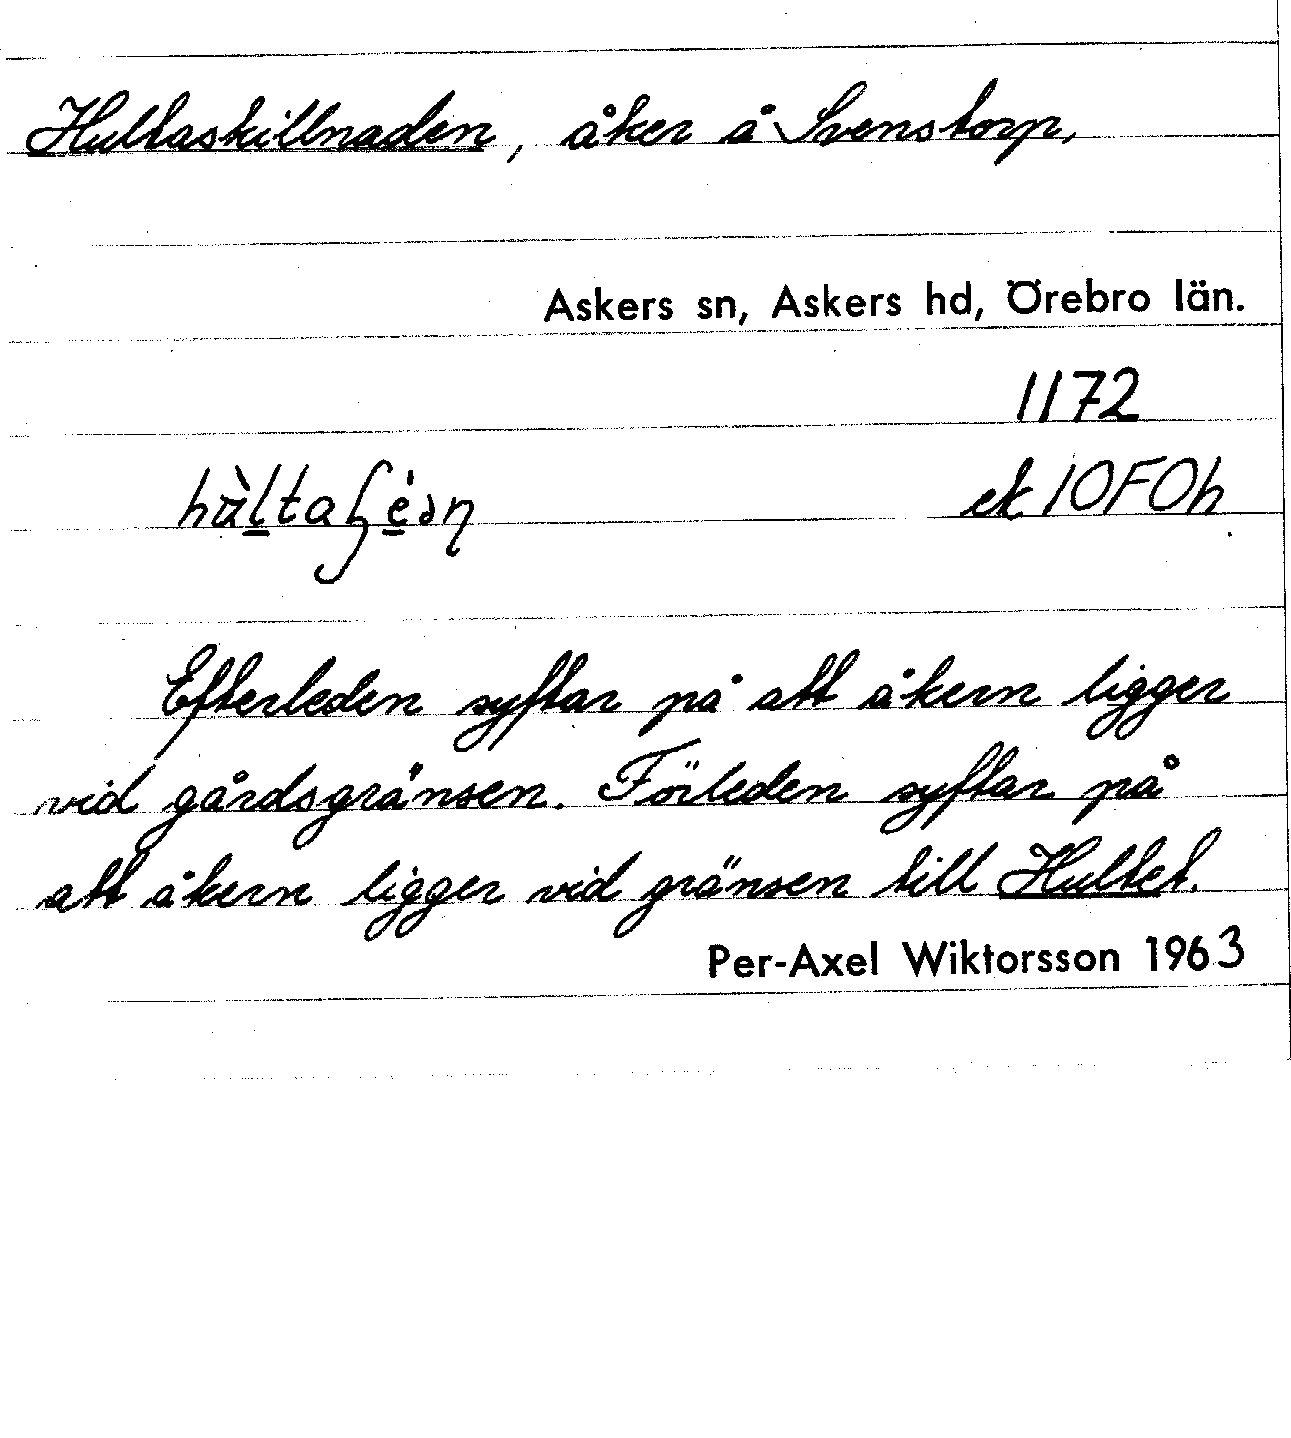 Hultaskillnaden, åker å Svenstorp,
Askers sn, Askers hd, Örebro län.
1172
ek 10F0h
Efterleden syftar på att åkern ligger
vid gårdsgränsen. Förleden syftar på
att åkern ligger vid gränsen till Hultet.
Per-Axel Wiktorsson 1963